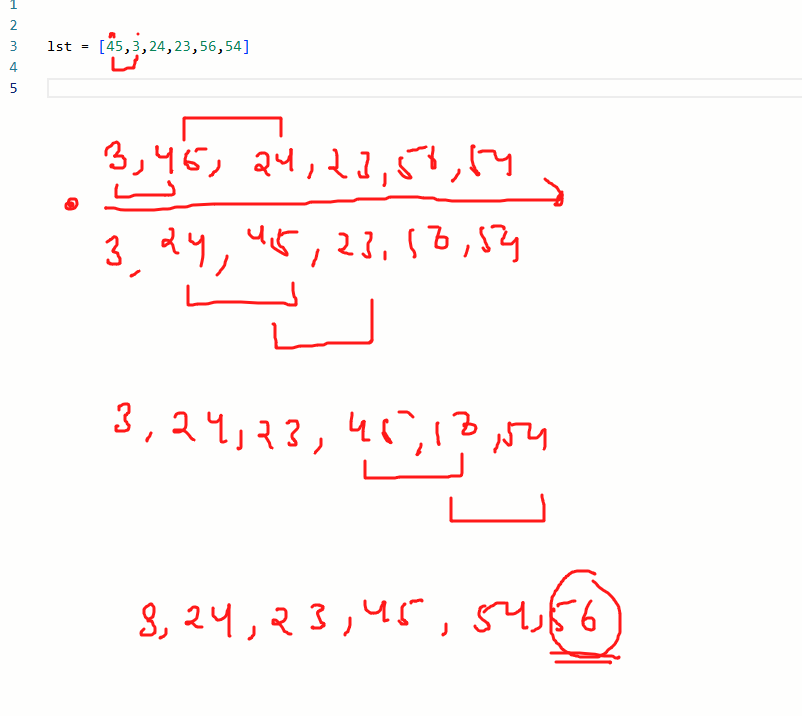 1
2
3 lst = [45,3,24,23,56,54]
4
5
3, 45, 24, 23, 56, 54
3, 24, 45, 23, 56, 54
3, 24, 23, 45, 56, 54
3, 24, 23, 45, 54, 56